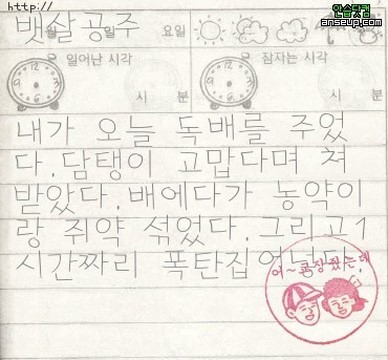 http://
안습닷컴
anseup.com
뱃살공주 요일
일어난 시각 잠자는 시각
12 3 6 9 12 3 6 9
시 분 시 분
내가 오늘 독배를 주었
다.담탱이 고맙다며 쳐
받았다.배에다가 농약이
랑 쥐약 섞었다.그리고1
시간짜리 폭탄집어넣다.
어~ 굉장했는데